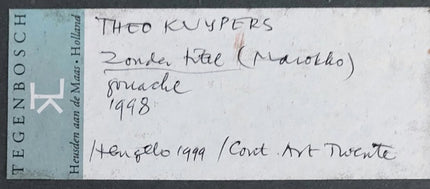 TEGENBOSCH
Heusden aan de Maas · Holland
THEO KUYPERS
Zonder titel (Marokko)
gouache
1998
Hengelo 1999 / Cont. Art Twente